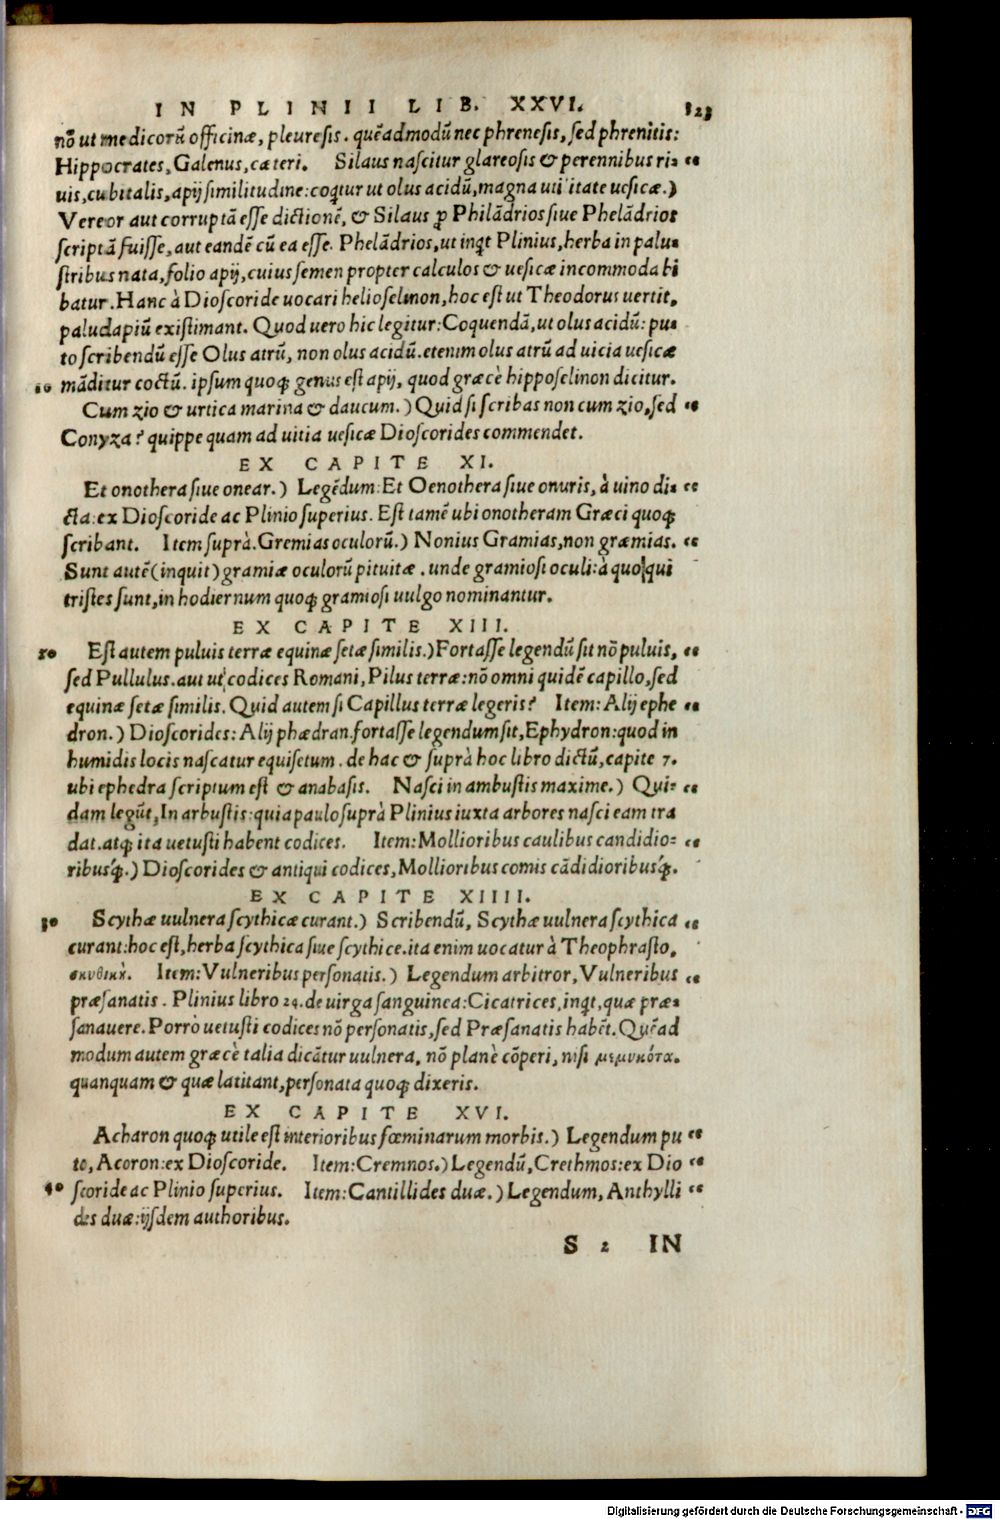 IN PLINII LIB. XXVI. 123
nõ ut medicorũ officinæ, pleuresis. quẽadmodũ nec phrenesis, sed phrenitis:
Hippocrates, Galenus, cæteri. Silaus nascitur glareosis & perennibus ri= “
uis, cubitalis, apij similitudine: coqtur ut olus acidũ, magna utilitate uesicæ.)
Vereor aut corruptã esse dictionẽ, & Silaus ꝓ Philãdrios siue Phelãdrios
scriptã fuisse, aut eandẽ cũ ea esse. Phelãdrios, ut inqt Plinius, herba in palu=
stribus nata, folio apij, cuius semen propter calculos & uesicæ incommoda bi
batur. Hanc à Dioscoride uocari helioselinon, hoc est ut Theodorus uertit,
paludapiũ existimant. Quod uero hic legitur: Coquendã, ut olus acidũ: pu=
to scribendũ esse Olus atrũ, non olus acidũ. etenim olus atrũ ad uicia uesicæ
10 mãditur coctũ. ipsum quoqꝫ genus est apij, quod græcè hipposelinon dicitur.
Cum zio & urtica marina & daucum.) Quid si scribas non cum zio, sed “
Conyza? quippe quam ad uitia uesicæ Dioscorides commendet.
EX CAPITE XI.
Et onothera siue onear.) Legẽdum: Et Oenothera siue onuris, à uino di= “
cta: ex Dioscoride ac Plinio superius. Est tamẽ ubi onotheram Græci quoqꝫ
scribant. Item suprà. Gremias oculorũ.) Nonius Gramias, non græmias. “
Sunt autẽ (inquit) gramiæ oculorũ pituitæ. unde gramiosi oculi: à quo qui
tristes sunt, in hodiernum quoqꝫ gramiosi uulgo nominantur.
EX CAPITE XIII.
20 Est autem puluis terræ equinæ setæ similis.) Fortasse legendũ sit nõ puluis, “
sed Pullulus. aut ut codices Romani, Pilus terræ: nõ omni quidẽ capillo, sed
equinæ setæ similis. Quid autem si Capillus terræ legeris? Item: Alij ephe “
dron.) Dioscorides: Alij phædran. fortasse legendum sit, Ephydron: quod in
humidis locis nascatur equisetum. de hac & suprà hoc libro dictũ, capite 7.
ubi ephedra scriptum est & anabasis. Nasci in ambustis maxime.) Qui= “
dam legũt, In arbustis: quia paulo suprà Plinius iuxta arbores nasci eam tra
dat. atqꝫ ita uetusti habent codices. Item: Mollioribus caulibus candidio= “
ribusqꝫ.) Dioscorides & antiqui codices, Mollioribus comis cãdidioribusqꝫ.
EX CAPITE XIIII.
30 Scythæ uulnera scythicæ curant.) Scribendũ, Scythæ uulnera scythica “
curant: hoc est, herba scythica siue scythice. ita enim uocatur à Theophrasto,
σκυθική. Item: Vulneribus personatis.) Legendum arbitror, Vulneribus “
præsanatis. Plinius libro 24. de uirga sanguinea: Cicatrices, inqt, quæ præ=
sanauere. Porrò uetusti codices nõ personatis, sed Præsanatis habẽt. Quẽad
modum autem græcè talia dicãtur uulnera, nõ planè cõperi, nisi μεμυκότα.
quanquam & quæ latitant, personata quoqꝫ dixeris.
EX CAPITE XVI.
Acharon quoqꝫ utile est interioribus fœminarum morbis.) Legendum pu “
to, Acoron: ex Dioscoride. Item: Cremnos.) Legendũ, Crethmos: ex Dio “
40 scoride ac Plinio superius. Item: Cantillides duæ.) Legendum, Anthylli “
des duæ: ijsdem authoribus.
S 2 IN
Digitalisierung gefördert durch die Deutsche Forschungsgemeinschaft - DFG